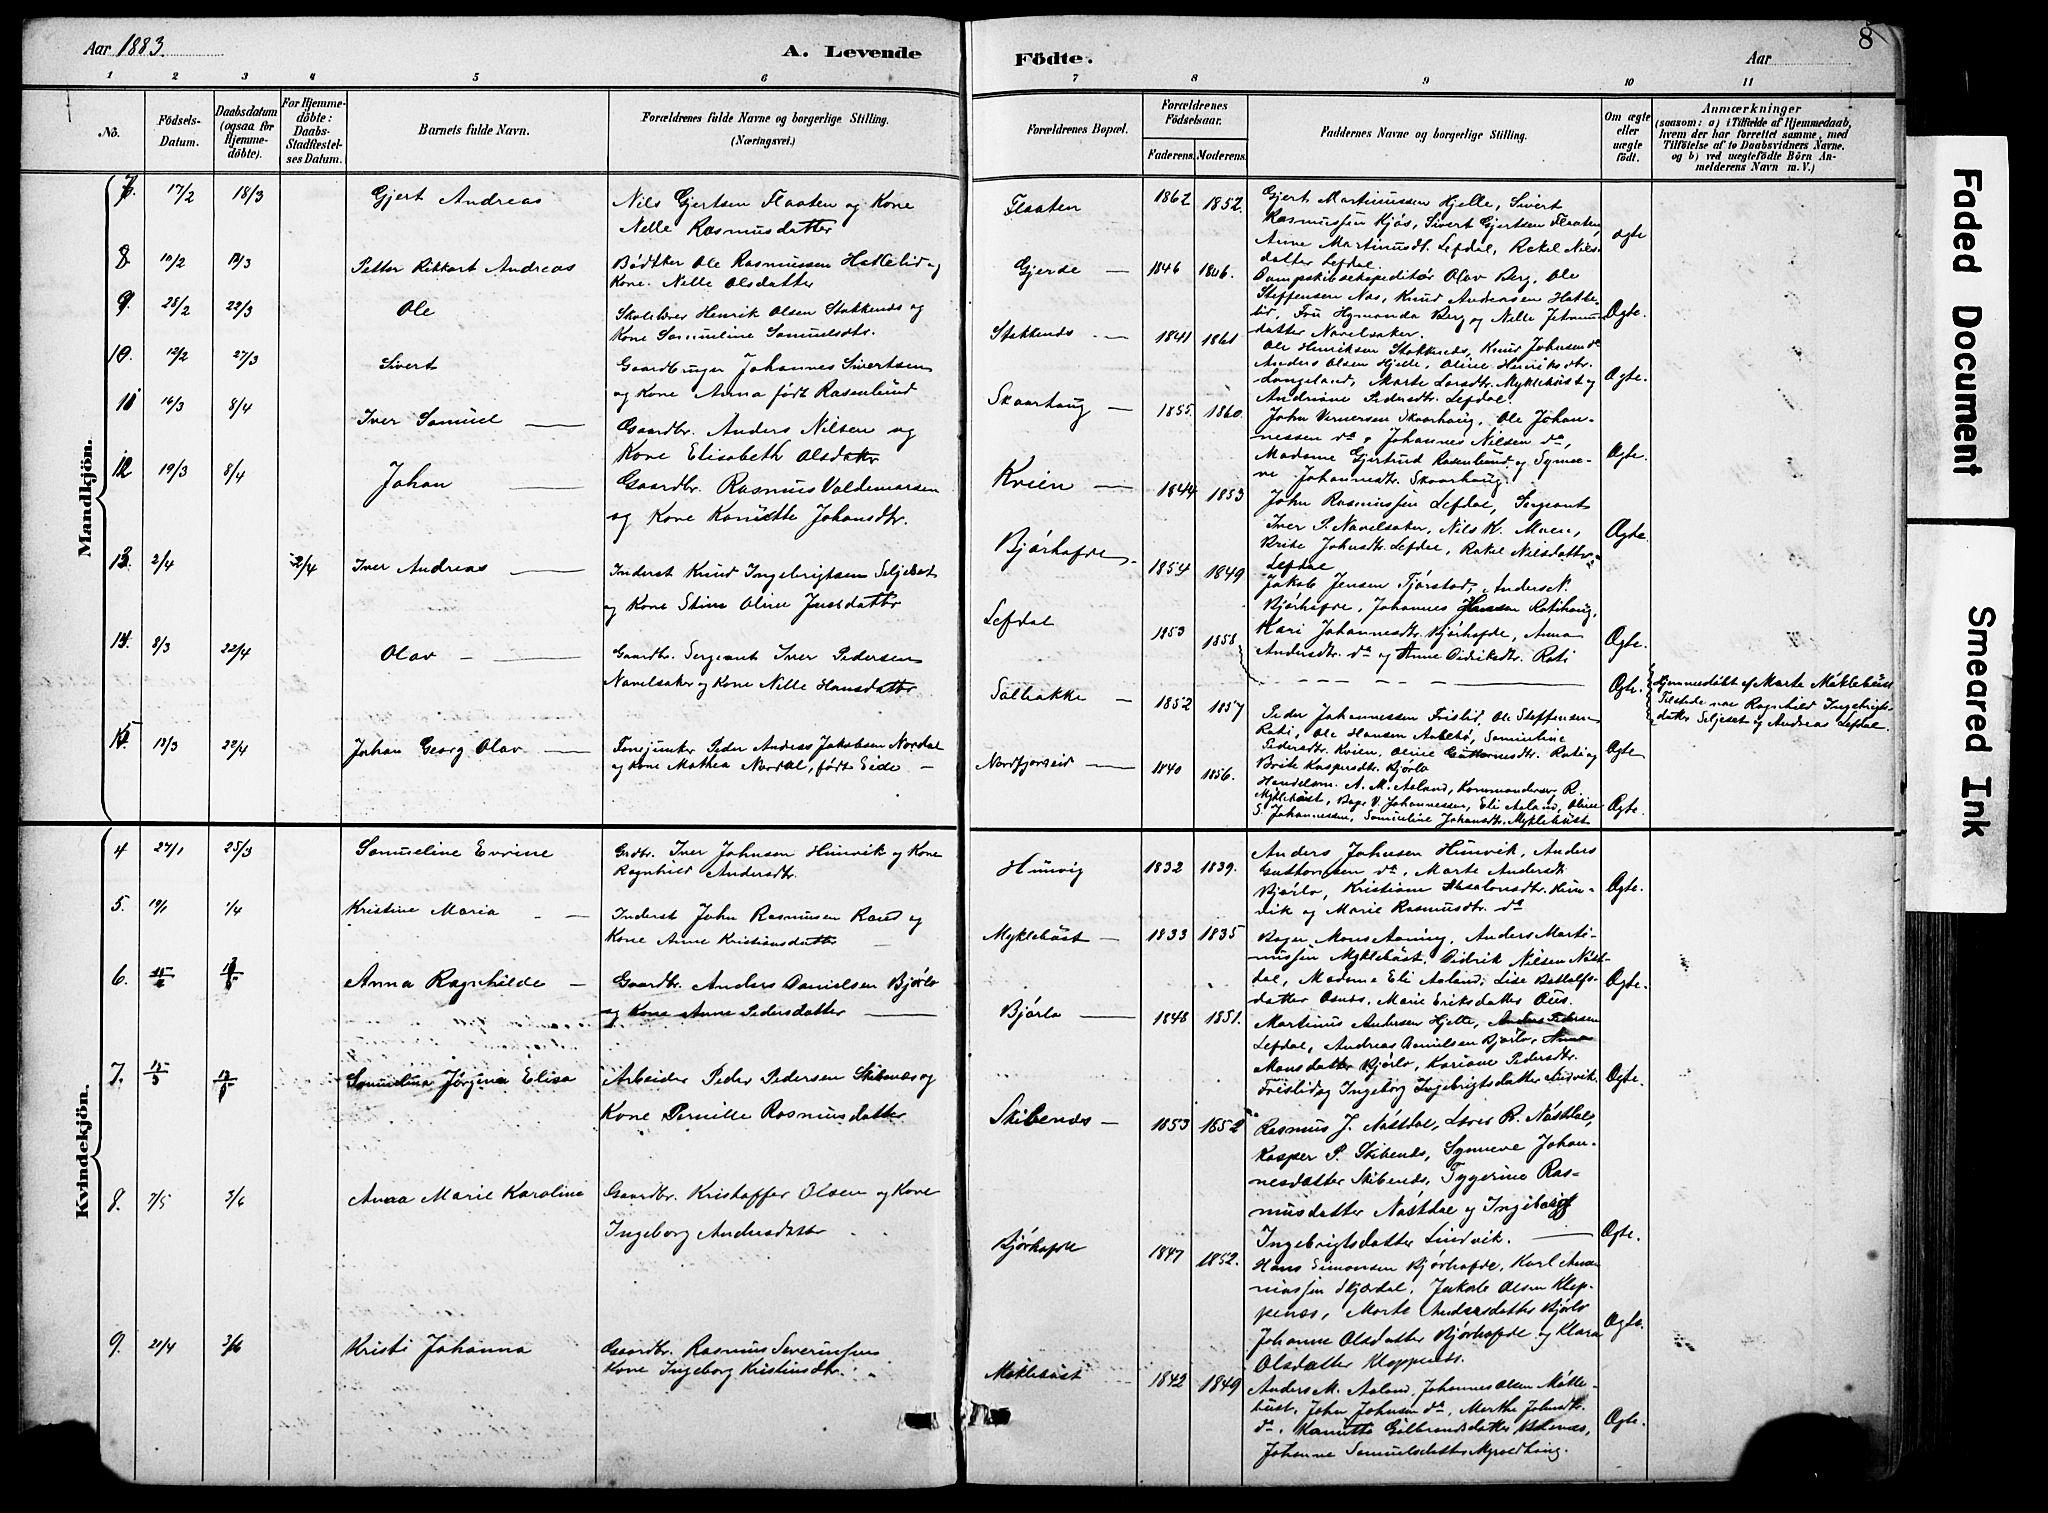 Aar 1883.
A. Levende
Födte.
Aar
8
1 2 3 4 5 6 7 8 9 10 11
No.
Födsels-Datum.
Daabsdatum (ogsaa for Hjemme-döbte).
For Hjemme-döbte: Daabs-Stadfæstel-ses Datum.
Barnets fulde Navn.
Forældrenes fulde Navne og borgerlige Stilling.
(Næringsvei.)
Forældrenes Bopæl.
Forældrenes Födselsaar.
Faderens. Moderens.
Faddernes Navne og borgerlige Stilling.
Om ægte eller uægte födt.
Anmærkninger
(saasom: a) i Tilfælde af Hjemmedaab, hvem der har forrettet samme, med Tilföielse af to Daabsvidners Navne. og b) ved uægtefödte Börn An-melderens Navn m. V.)
Mandkjön.
7. 17/2 18/3 Gjert Andreas
Nils Gjertsen Flaaten og Kone
Nelle Rasmusdatter
Flaaten 1862 1852.
Gjert Martinussen Hjelle, Sivert
Rasmussen Kjøs, Sivert Gjertsen Flaaten,
Anne Martinusdt. Lefdal, Rakel Nils-
datter Lefdal.
Ægte
8 Petter Rikkart Andreas
Bødtker Ole Rasmussen Hattelid og
Kone Nelle Olsdatter
Gjerde — 1846
Dampskibsexpeditør Olav Berg, Ole
Steffensen Nos, Knud Andersen Hatte-
lid, Fru Hymanda Berg og Nelle
datter Navelsaker.
Ægte.
9. 28/2 22/3 Ole
Skolelærer Henrik Olsen Stokkenes og
Kone Samueline Samuelsdtr.
Stokkenes — 1841 1861
Ole Henriksen Stokkenes, Knud Johnsen do
Anders Olsen Hjelle, Oline Henriksdtr.
Langeland, Marte Larsdtr. Myklebust og
Andriane Pedersdtr. Lefdal.
Ægte.
10. 12/2 27/3 Sivert
Gaardbruger Johannes Sivertsen
og Kone Anna født Rosenlund
Skaarhaug — 1855. 1860.
John Vernersen Skaarhaug, Ole Johan-
nessen do, Johannes Nilsen do,
Madame Gjertrud Rosenlund og Synne-
ve Johannesdtr. Skaarhaug.
Ægte.
11 16/3 8/4 Iver Samuel —
Gaardbr. Anders Nilsen og
Kone Elisabeth Olsdatter
Kvien — 1844 1853
John Rasmussen Lefdal, Sergeant
Iver P. Navelsaker, Nils K. Moen,
Brite Johnsdtr. Lefdal, Rakel Nilsdatter
Lefdal
Ægte.
12 19/3 8/4 Johan —
Gaardbr. Rasmus Valdemarsen
og Kone Kanutte Johansdtr.
Bjørhofde — 1854 1849
Jakob Jensen Tjørstad, Anders N.
Bjørhofde, Johannes Hansen Rotihaug,
Kari Johannesdtr. Bjørhofde, Anna
Andersdtr. do og Anne Didriksdtr. Roti
Ægte.
13. 2/4 2/4 Iver Andreas —
Inderst Knud Ingebrigtsen Seljeset
og Kone Stine Oline Jensdatter
Lefdal 1853 1858
Ægte.
Hjemmedøbt af Marte Myklebust
Tilstede var Ragnhild Ingebrigts-
datter Seljeset og Andreas Lefdal.
14. 8/3 22/4 Olav —
Gaardbr. Sergeant Iver Pedersen
Navelsaker og Kone Nille Hansdatter
Solbakke — 1852 1857
Peder Johannessen Frislid, Ole Steffensen
Roti, Ole Hansen Aabebø, Samueline
Pedersdtr. Kvien, Oline Guttormsdtr. Roti og
Brite Kaspersdtr. Bjørlo
Ægte
15. 13/3 22/4 Johan Georg Olav —
Fanejunker Peder Andreas Jakobsen Nordal
og Kone Mathea Nordal, født Eide —
Nordfjordeid — 1840 1856.
Handelsm. A. M. Aaland, Kommandersg. R.
Myklebust, Bager V. Johannessen, Eli Aaland, Oline
S. Johannessen, Samueline Johansdtr. Myklebust
Ægte.
Kvindekjön.
4 27/1 25/3 Samueline Evrine
Grdbr. Iver Johnsen Hunvik og Kone
Ragnhild Andersdtr.
Hunvig 1832 1839.
Anders Johnsen Hunvik, Anders
Guttormsen do, Marte Andersdt
Bjørlo, Kristiane Absalonsdtr. Hun-
vik og Marie Rasmusdtr. do
Ægte.
5. 19/1 1/4 Kristine Maria —
Inderst John Rasmusen Rand og
Kone Anne Kristiansdatter
Myklebust — 1833 1835
Bager Mons Aaning, Anders Marti-
nussen Myklebust, Didrik Nilsen Nøst-
dal, Madame Eli Aaland, Lise
datter Osnes, Marie Eriksdatter Ous.
Ægte.
6. Anna Ragnhilde —
Gaardbr. Anders Danielsen Bjørlo
og Kone Anne Pedersdatter —
Bjørlo — 1848 1851.
Martinus Andersen Hjelle, Anders Pedersen
Lefdal, Andreas Danielsen Bjørlo, Anna
Monsdatter Bjørlo, Kariane Pedersdtr.
Frislid og Ingeborg Ingebrigtsdatter Lindvik.
Ægte.
7. Samuelina Jørgine Elisa
Arbeider Peder Pedersen Skibenes og
Kone Pernille Rasmusdatter
Skibenes — 1853 1852
Rasmus J. Nøstdal, Lars R. Nøstdal,
Kasper P. Skibenes, Synneve Johan-
nesdatter Skibenes, Tyggerine Ras-
musdatter Nøstdal og Ingeborg
Ingebrigtsdatter Lindvik. —
Ægte.
8. 7/5 3/6 Anna Marie Karolina
Gaardbr. Kristoffer Olsen og Kone
Ingeborg Andersdatter
Bjørhofde 1847 1852.
Hans Simonsen Bjørhofde, Karl
Jakob Olsen Klop-
penes, Marte Andersdatter Bjørlo
Johanne Olsdatter Bjørhofde og Klara
Olsdatter Kloppenes.
Ægte.
9. 21/4 3/6 Kristi Johanna
Gaardbr. Rasmus Severinsen
Kone Ingeborg Kristensdtr.
Myklebust 1842 1849
Anders M. Aaland, Johannes Olsen Mykle-
bust, John Johnsen do, Marthe Johnsdtr.
do, Kanutte Gulbrandsdatter
Johanne Samuelsdatter Myroldhaug.
Ægte.
Faded Document
Smeared Ink